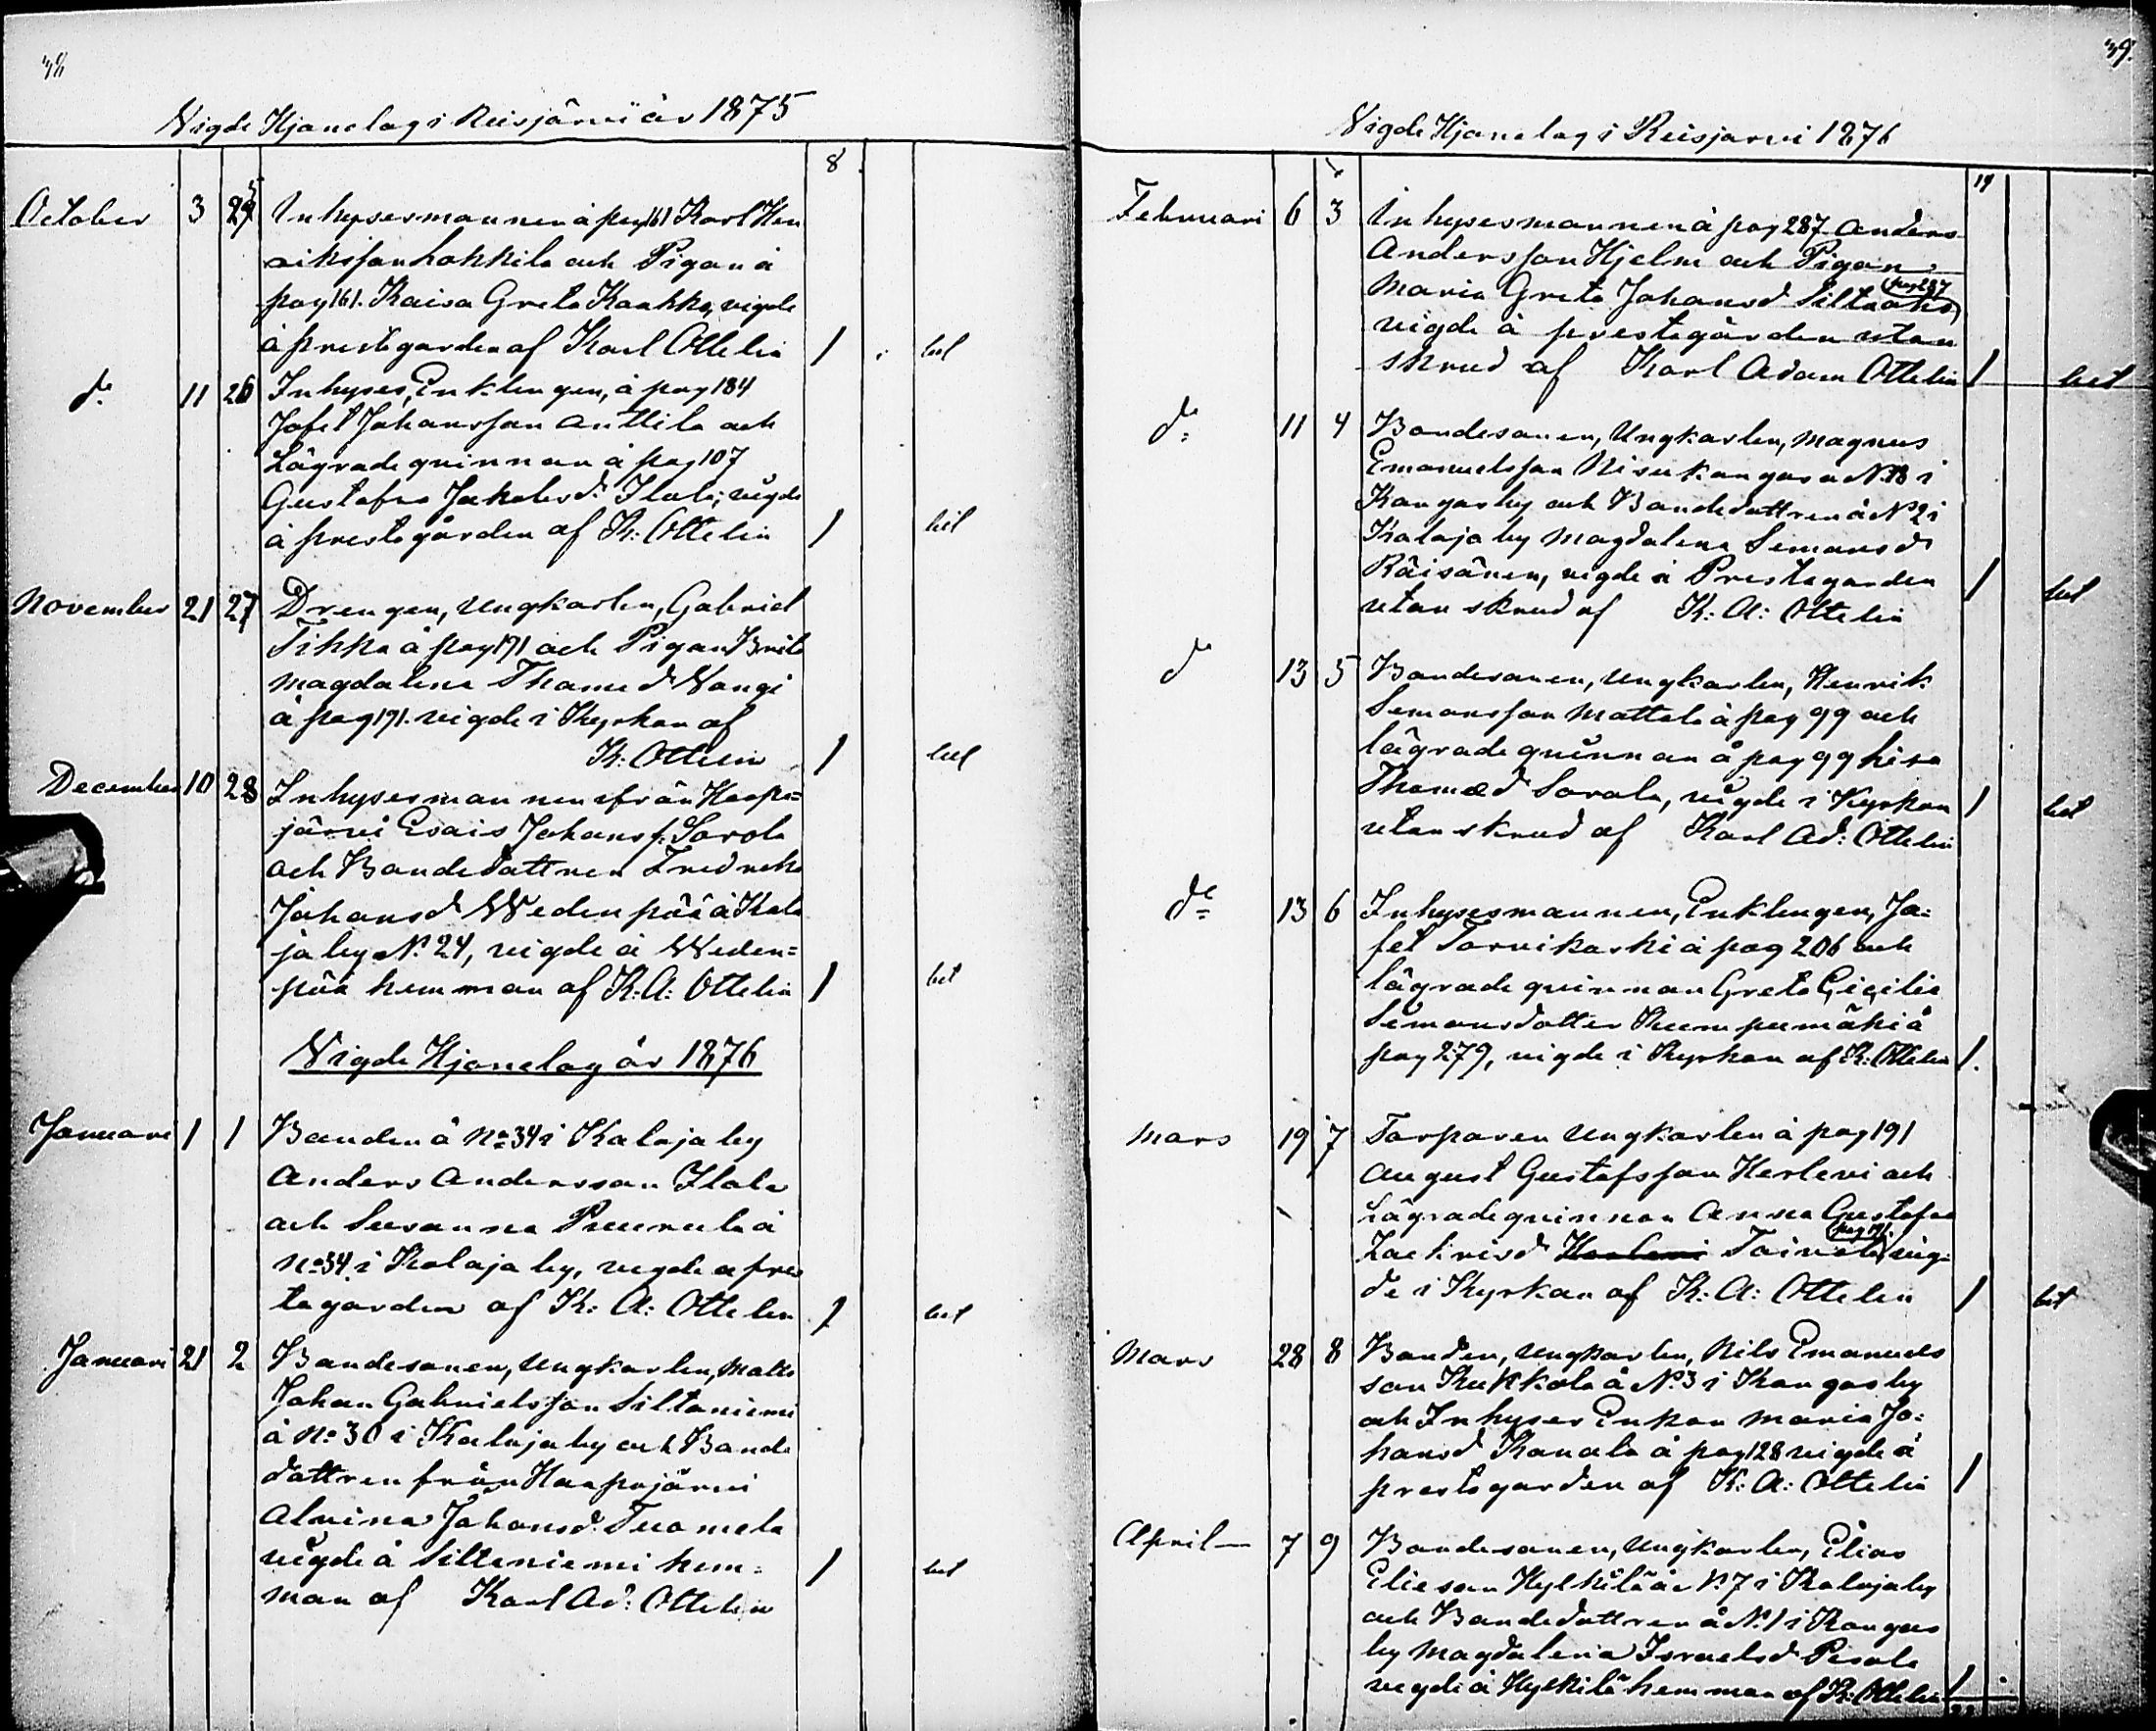 38
Vigde Hjonelag i Reisjärvi år 1875
8
October 3 25 Inhysesmannen å pag 161 Karl Hen
riksson Hokkila och Pigan å
pag 161. Kaisa Greta Kaakko, vigde
å prestegarden af Karl Ottelin 1 bet
do 11 26 Inhyses, Enklingen, å pag 184
Jafet Johansson Anttila och
Lägrade qvinnan å pag 107
Gustafva Jakobsd. Ilola; vigde
å prestegården af K: Ottelin 1 bet
November 21 27 Drengen, Ungkarlen, Gabriel
Tikka å pag 171 och Pigan Brita
Magdalena Thomæd Vangi
å pag 171. vigde i Kyrkan af
K: Ottelin 1 bet
December 10 28 Inhysesmannen från Haapa=
järvi Esais Johans s. Sorola
och Bondedottren Fredrika
Johansd Wedenpää å Kala
ja by No 24, vigde å Weden=
pää hemman af K: A: Ottelin 1 bet
Vigde Hjonelag år 1876
Januari 1 1 Bonden å No 34 i Kalaja by
Anders Andersson Ilola
och Susanna Puurula å
No 34 i Kalaja by, vigde a pres
tegarden af K: A: Ottelin 1 bet
Januari 21 2 Bondesonen, Ungkarlen, Matts
Johan Gabrielsson Siltaniemi
å No 30 i Kalaja by och Bonde
dottren från Haapajärvi
Alvina Johansd. Tuomela
vigde å Siltaniemi hem=
man af Karl Ad: Ottelin 1 bet
39.
Vigde Hjonelag i Reisjarvi 1876
19
Februari 6 3 Inhysesmannen å pag 287 Anders
Andersson Hjelm och Pigan
Maria Greta Johansd Siltaaho pag 287
vigde å prestegården utan
skrud af Karl Adam Ottelin 1 bet
do 11 4 Bondesonen, Ungkarlen, Magnus
Emanuelsson Nisukangas å N 18 i
Kangas by och Bondedottren å No 2 i
Kalaja by Magdalena Simonsd
Räisänen, vigde å Prestegarden
utan skrud af K: A: Ottelin 1 bet
do 13 5 Bondesonen, Ungkarlen, Henrik
Simonsson Mattala å pag 99 och
lägrade qvinnan å pag 99 Lisa
Thomæd Sorola, vigde i Kyrkan
utan skrud af Karl Ad: Ottelin 1 bet
do 13 6 Inhysesmannen, Enklingen, Ja=
fet Torvikoski å pag 206 och
lägrade qvinnan Greta Cicilia
Simonsdotter Kumpumäki å
pag 279, vigde i Kyrkan af K: Ottelin 1.
Mars 19 7 Torparen Ungkarlen å pag 191
August Gustafsson Herlevi och
Lägradeqvinnan Anna Gustafva
Zachrisd Herlevi Toivola pag 191. vig=
de i Kyrkan af K: A: Ottelin 1 bet
Mars 28 8 Bonden, Ungkarlen, Nils Emanuels
son Kukkola å No 3 i Kangas by
och Inhyses Enkan Maria Jo=
hansd Kanala å pag 128 vigde å
prestegarden af K: A: Ottelin 1
April 7 9 Bondesonen, Ungkarlen, Elias
Elieson Hylkilä å N. 7 i Kalaja by
och Bondedottren å No 1 i Kangas
by Magdalena Israelsd Pesola
vigde å Hylkilä hemman af K: Ottelin 1